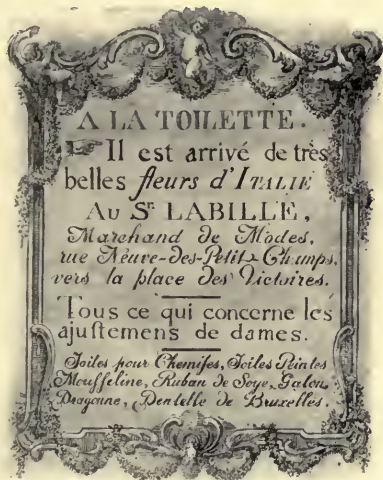 A LA TOILETTE.
☞ Il est arrivé de très
belles fleurs d'ITALIE
AU Sr. LABILLE,
Marchand de Modes,
rue Neuve-des-Petits-Champs,
vers la place des Victoires.
Tous ce qui concerne les
ajustemens de dames.
Toiles pour Chemises, Toiles Peintes
Mousseline, Ruban de Soye, Galon,
Dragonne, Dentelle de Bruxelles.